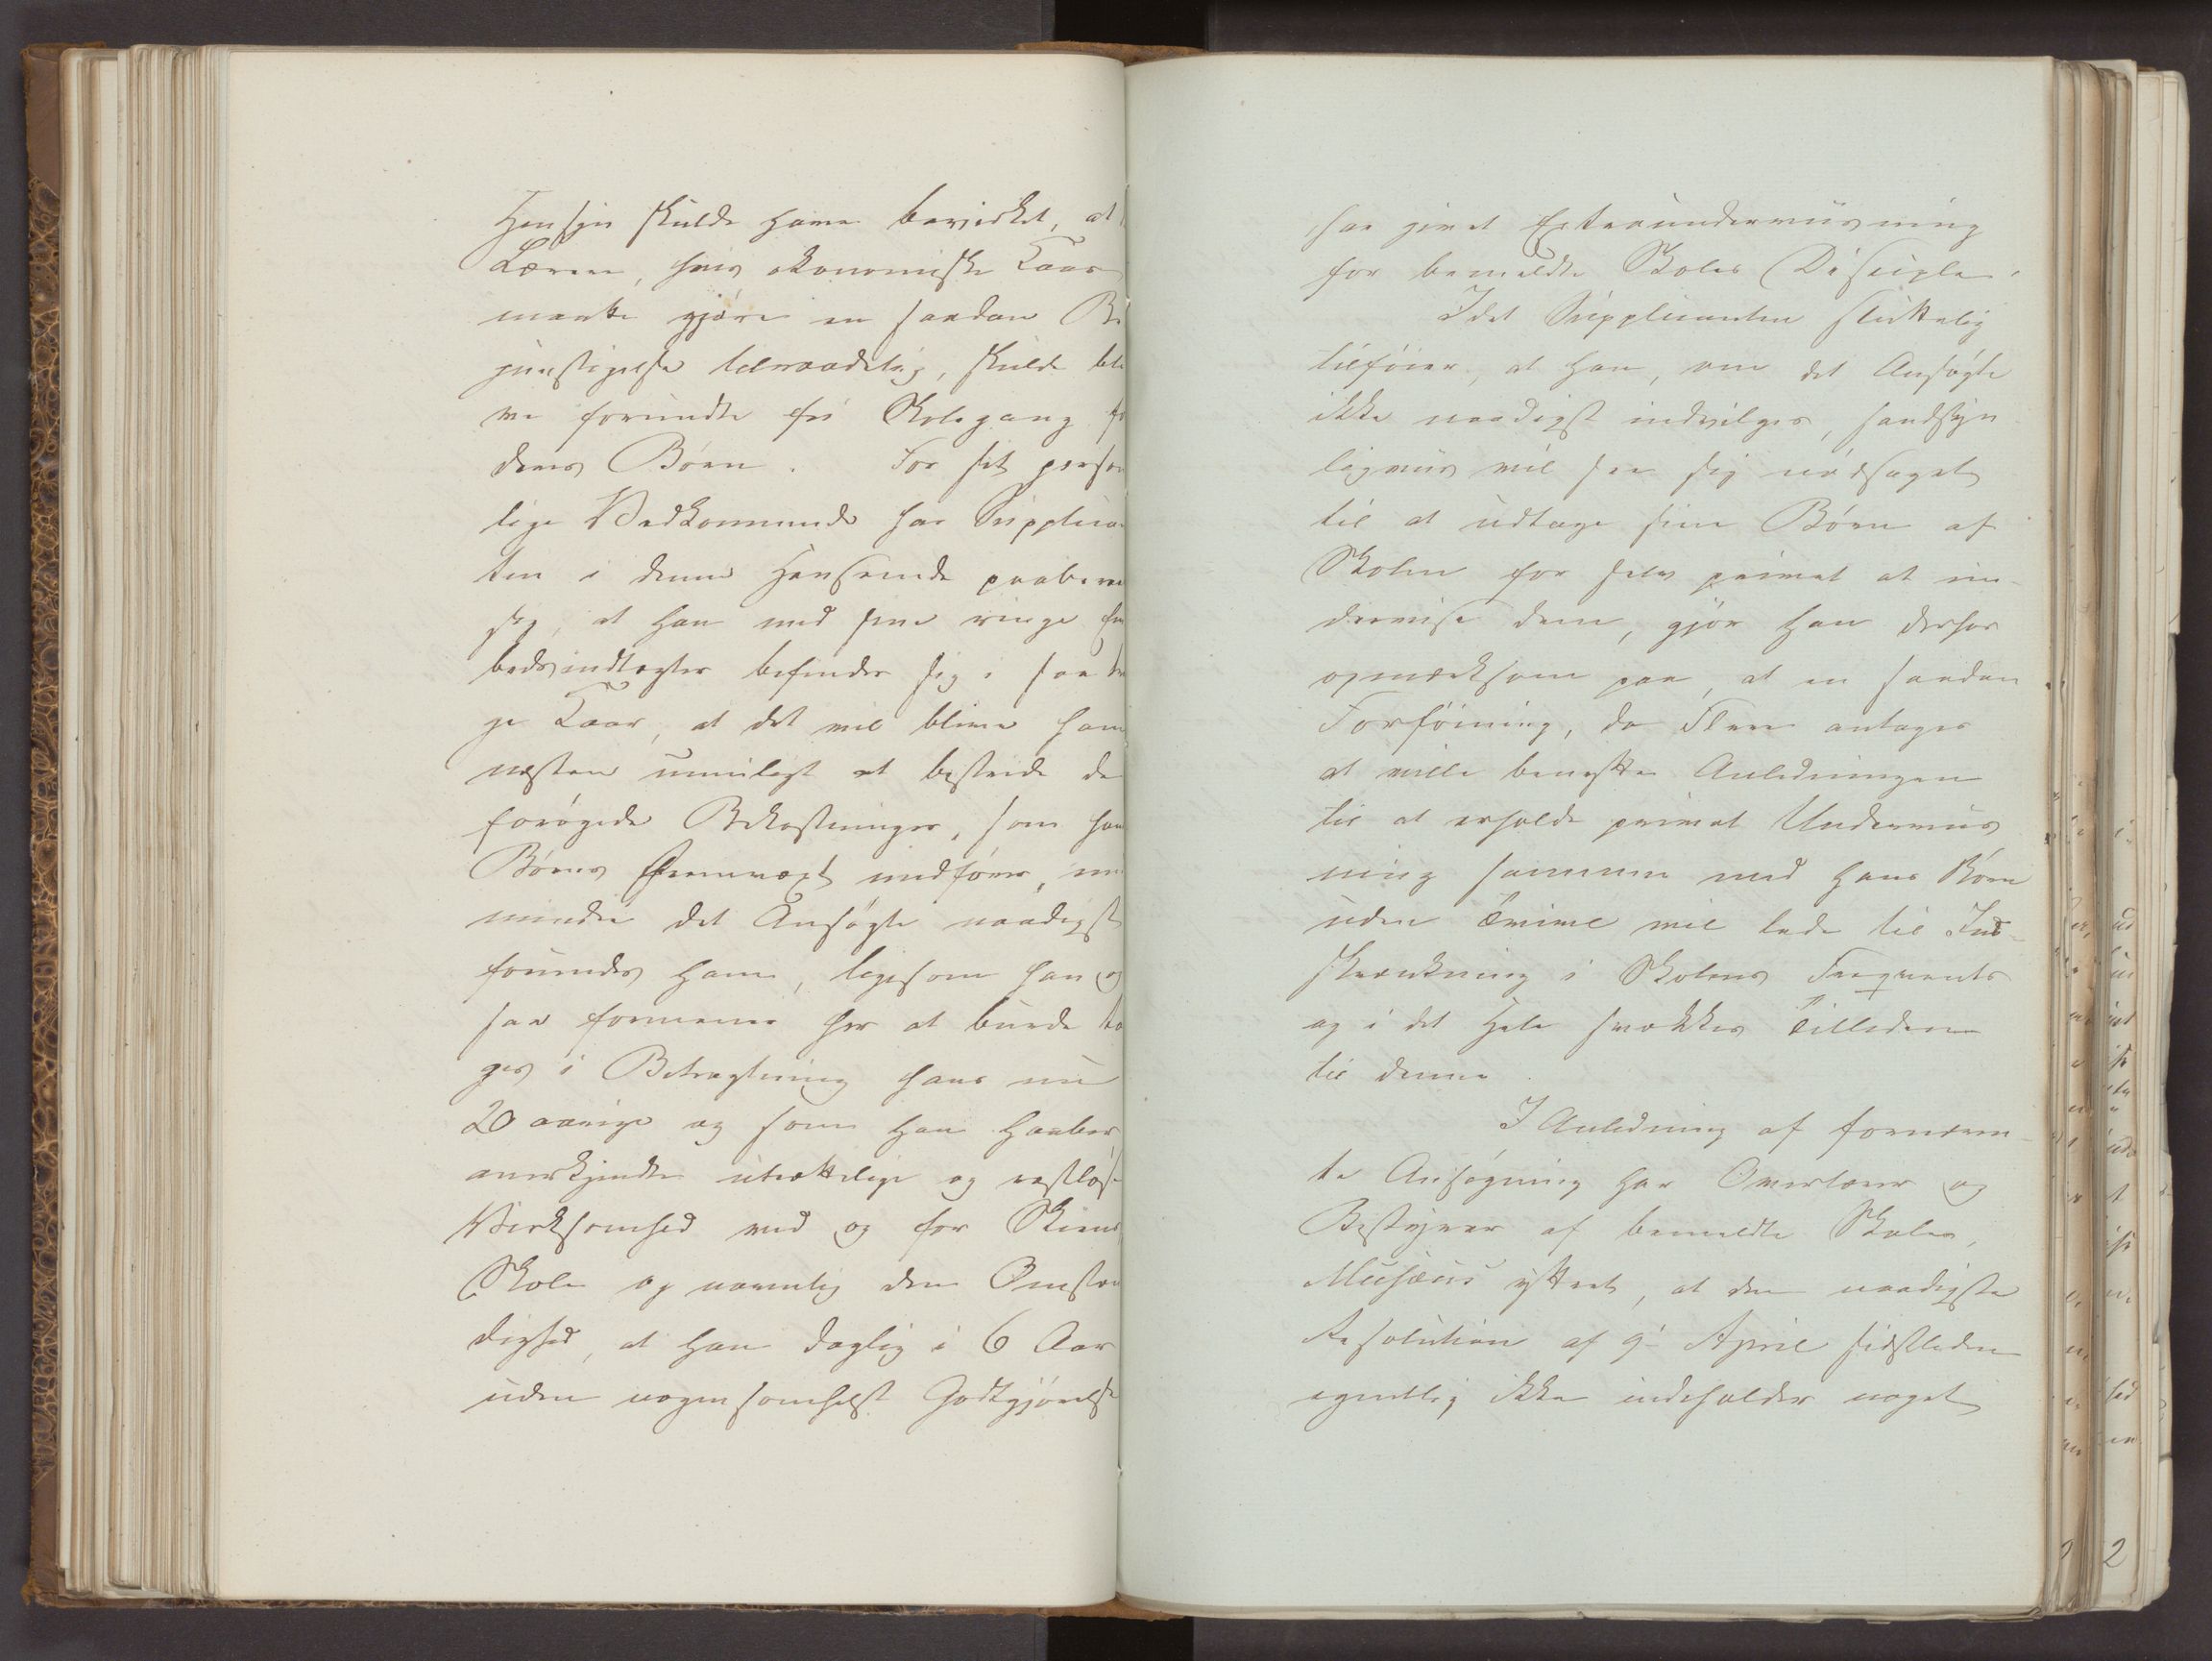 Hensyn skulde have bevirket, at
Lærere, hvis økonomiske Kaar
maatte gjøre en saadan Be
gunstigelse tilraadelig, skulde bli
ve forundte fri Skolegang fo
deres Børn. For sit person
lige Vedkommende har Supplican
ten i denne Henseende paabera
sig, at han med sine ringe Em
bedsindtægter befinder sig i saa tr
ge Kaar, at det vil blive ham
næsten umuligt at bestride de
forøgede Bekostninger, som ha
Børns Fremvæxt medfører, m
mindre det Ansøgte naadigst
forundes ham, ligesom han og
saa formener her at burde ta
ges i Betragtning hans nu
20 aarige og som han haaber
anerkjendte utrættelige og restløse
Virksomhed ved og for Skiens
Skole og navnlig den Omstæn
dighed, at han daglig i 6 Aar
uden nogensomhelst Godtgjørelse
har givet Extraunderviisning
for bemeldte Skoles Disciple.
Idet Supplicanten sluttelig
tilføier, at han, om det Ansøgte
ikke naadigst indvilges, sandsyn
ligviis vil see sig nødsaget
til at udtage sine Børn af
Skolen for selv privat at un-
dervise dem, gjør han derhos
opmærksom paa, at en saadan
Forføining, da Flere antages
at ville benytte Anledningen
til at erholde privat Underviis
ning sammen med hans Børn
uden Tvivl vil lede til Ind-
skrænkning i Skolens Freqvents
og i det Hele svække Tilliden
til denne.
I Anledning af fornævn-
te Ansøgning har Overlærer og
Bestyrer af bemeldte Skole,
Musæus yttret, at den naadigste
Resolution af 9de April sidstleden
egentlig ikke indeholder noget